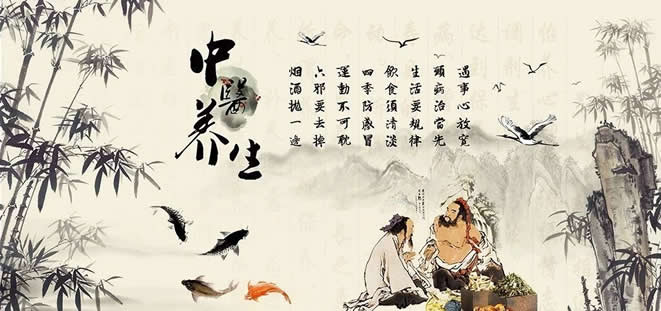 中醫养生
遇事心放寬
頭病治當先
生活要規律
飲食須清淡
四季防感冒
運動不可耽
六邪要去掉
烟酒拋一边